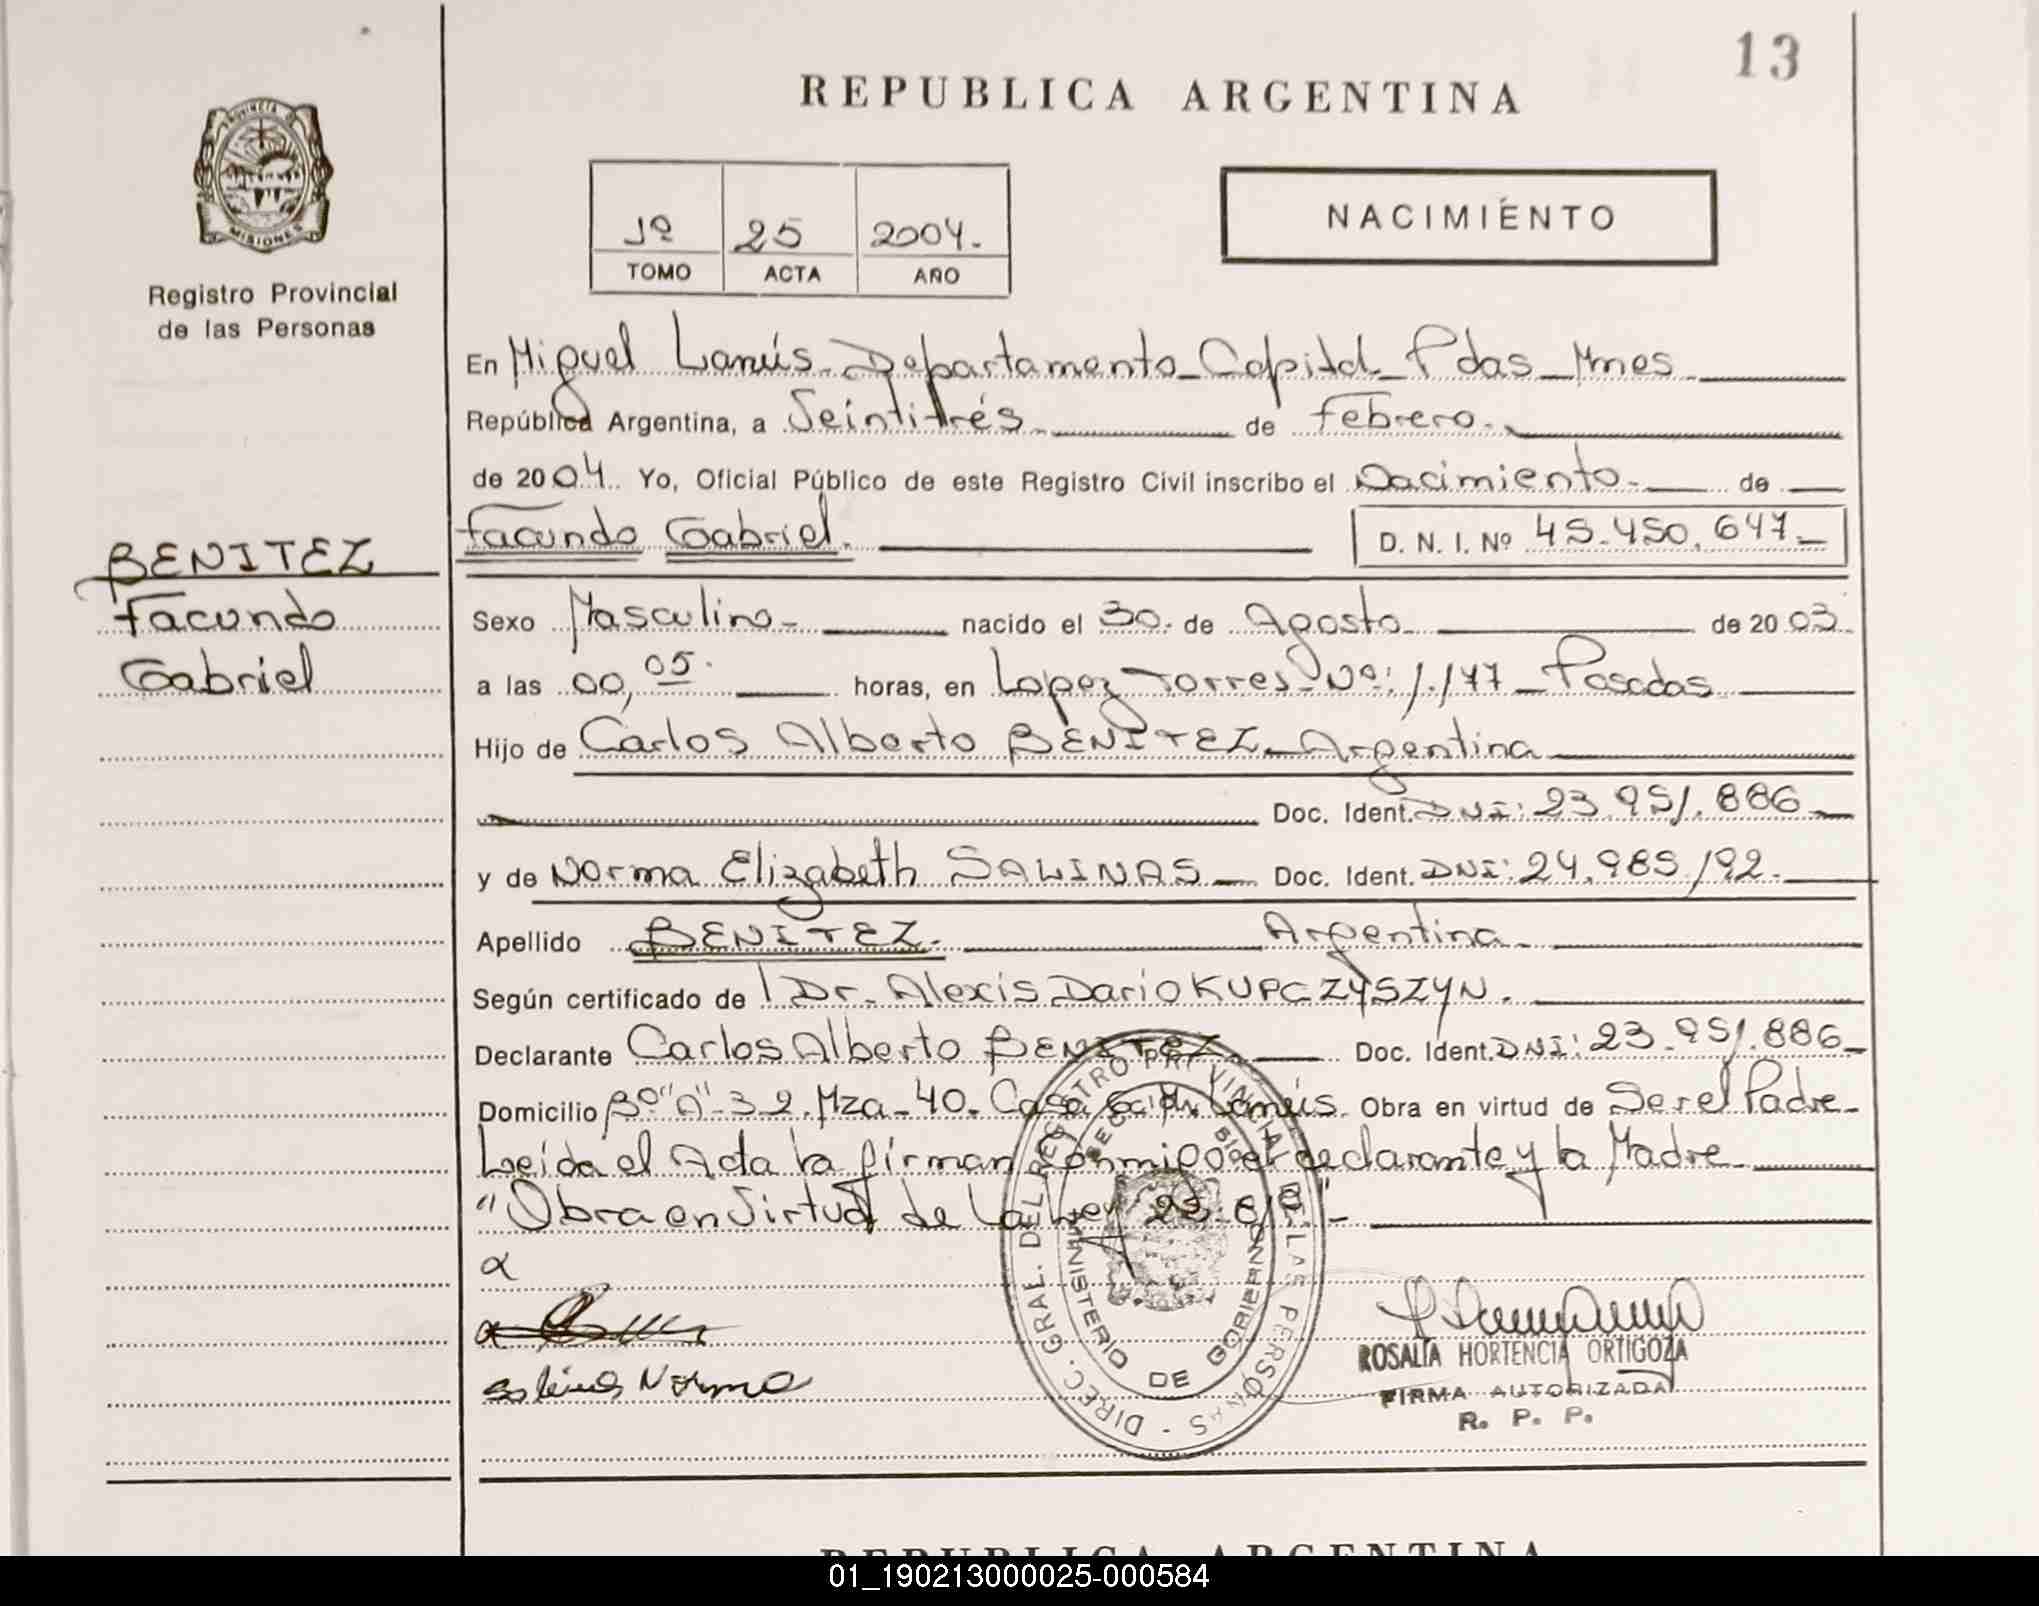 13
REPUBLICA ARGENTINA
PROVINCIA DE
MISIONES
Registro Provincial
de las Personas
1º 25 2004.
TOMO ACTA AÑO
NACIMIENTO
En Miguel Lanús - Departamento - Capital - Pdas - Mnes
República Argentina, a Veintitrés de Febrero.
de 2004. Yo, Oficial Público de este Registro Civil inscribo el Nacimiento - de
BENITEZ
Facundo
Gabriel
Facundo Gabriel. D. N. I. Nº 45.450.647
Sexo Masculino - nacido el 30 de Agosto de 2003
a las 00,05 horas, en Lopez Torres Nº: 1.147 - Posadas
Hijo de Carlos Alberto BENITEZ - Argentina
Doc. Ident. DNI: 23.951.886
y de Norma Elizabeth SALINAS Doc. Ident. DNI: 24.985.192.
Apellido BENITEZ. Argentina
Según certificado de Dr. Alexis Dario KUPCZYSZYN.
Declarante Carlos Alberto BENITEZ Doc. Ident. DNI: 23.951.886
Domicilio Bº "A" 32. Mza - 40. Casa Lanús. Obra en virtud de Ser el Padre
Leida el Acta la firman conmigo el declarante y la Madre
"Obra en Virtud de la Ley
Salinas Norma
DIREC. GRAL. DEL REGISTRO PROVINCIAL DE LAS PERSONAS -
MINISTERIO DE GOBIERNO
ROSALIA HORTENCIA ORTIGOZA
FIRMA AUTORIZADA
R. P. P.
REPUBLICA ARGENTINA
01_190213000025-000584